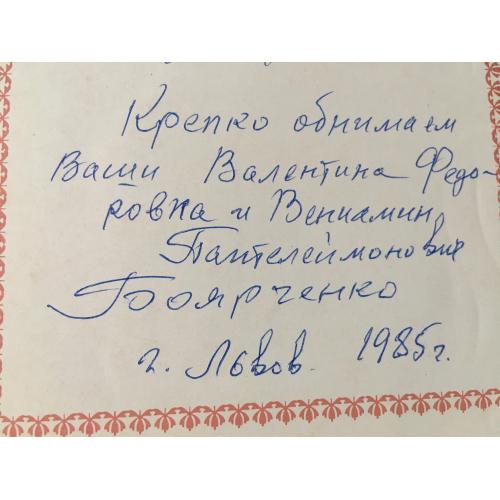 Крепко обнимаем
Ваши Валентина Федо-
ровна и Вениамин
Пантелеймонович
Боярченко
г. Львов. 1985г.